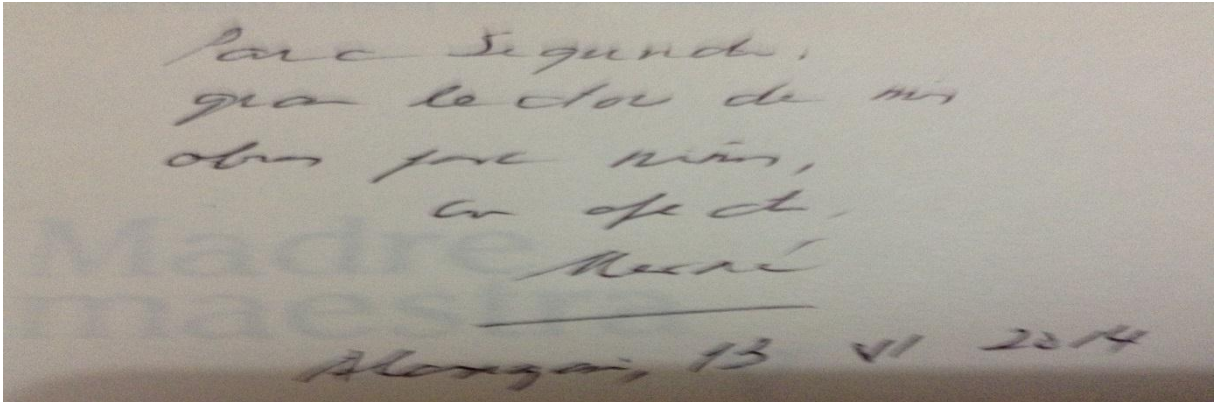 Para Segundo,
gran lector de mis
obras para niños,
con afecto,
Madre
maestra
13 VI 2014